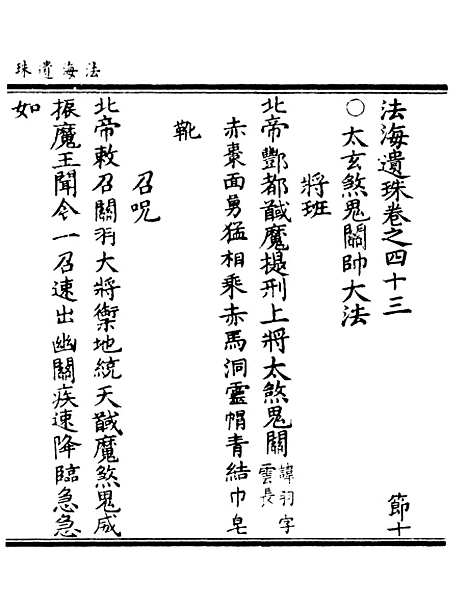 法海遺珠
法海遺珠卷之四十三　節十
○太玄煞鬼關帥大法
將班
北帝酆都馘魔提刑上將太煞鬼關諱羽字雲長
赤棗面勇猛相乘赤馬洞靈帽青結巾皂
靴
召呪
北帝敕召關羽大將禦地統天馘魔煞鬼威
振魔王聞令一召速出幽關疾速降臨急急
如